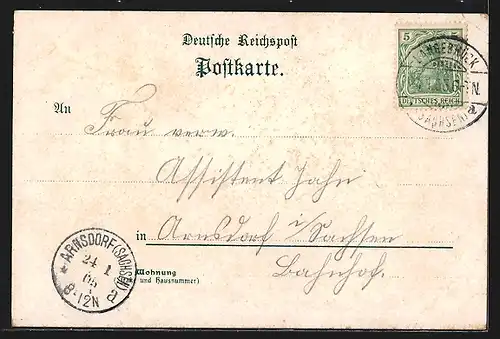 Deutsche Reichspost
Postkarte.
5
DEUTSCHES REICH
LANGEBRÜCK
(SACHSEN)
An
Frau verw.
Assistent Jahn
in Arnsdorf i/Sachsen
Bahnhof.
Wohnung
und Hausnummer)
* ARNSDORF (SACHSEN) d
24 1
05
8-12N